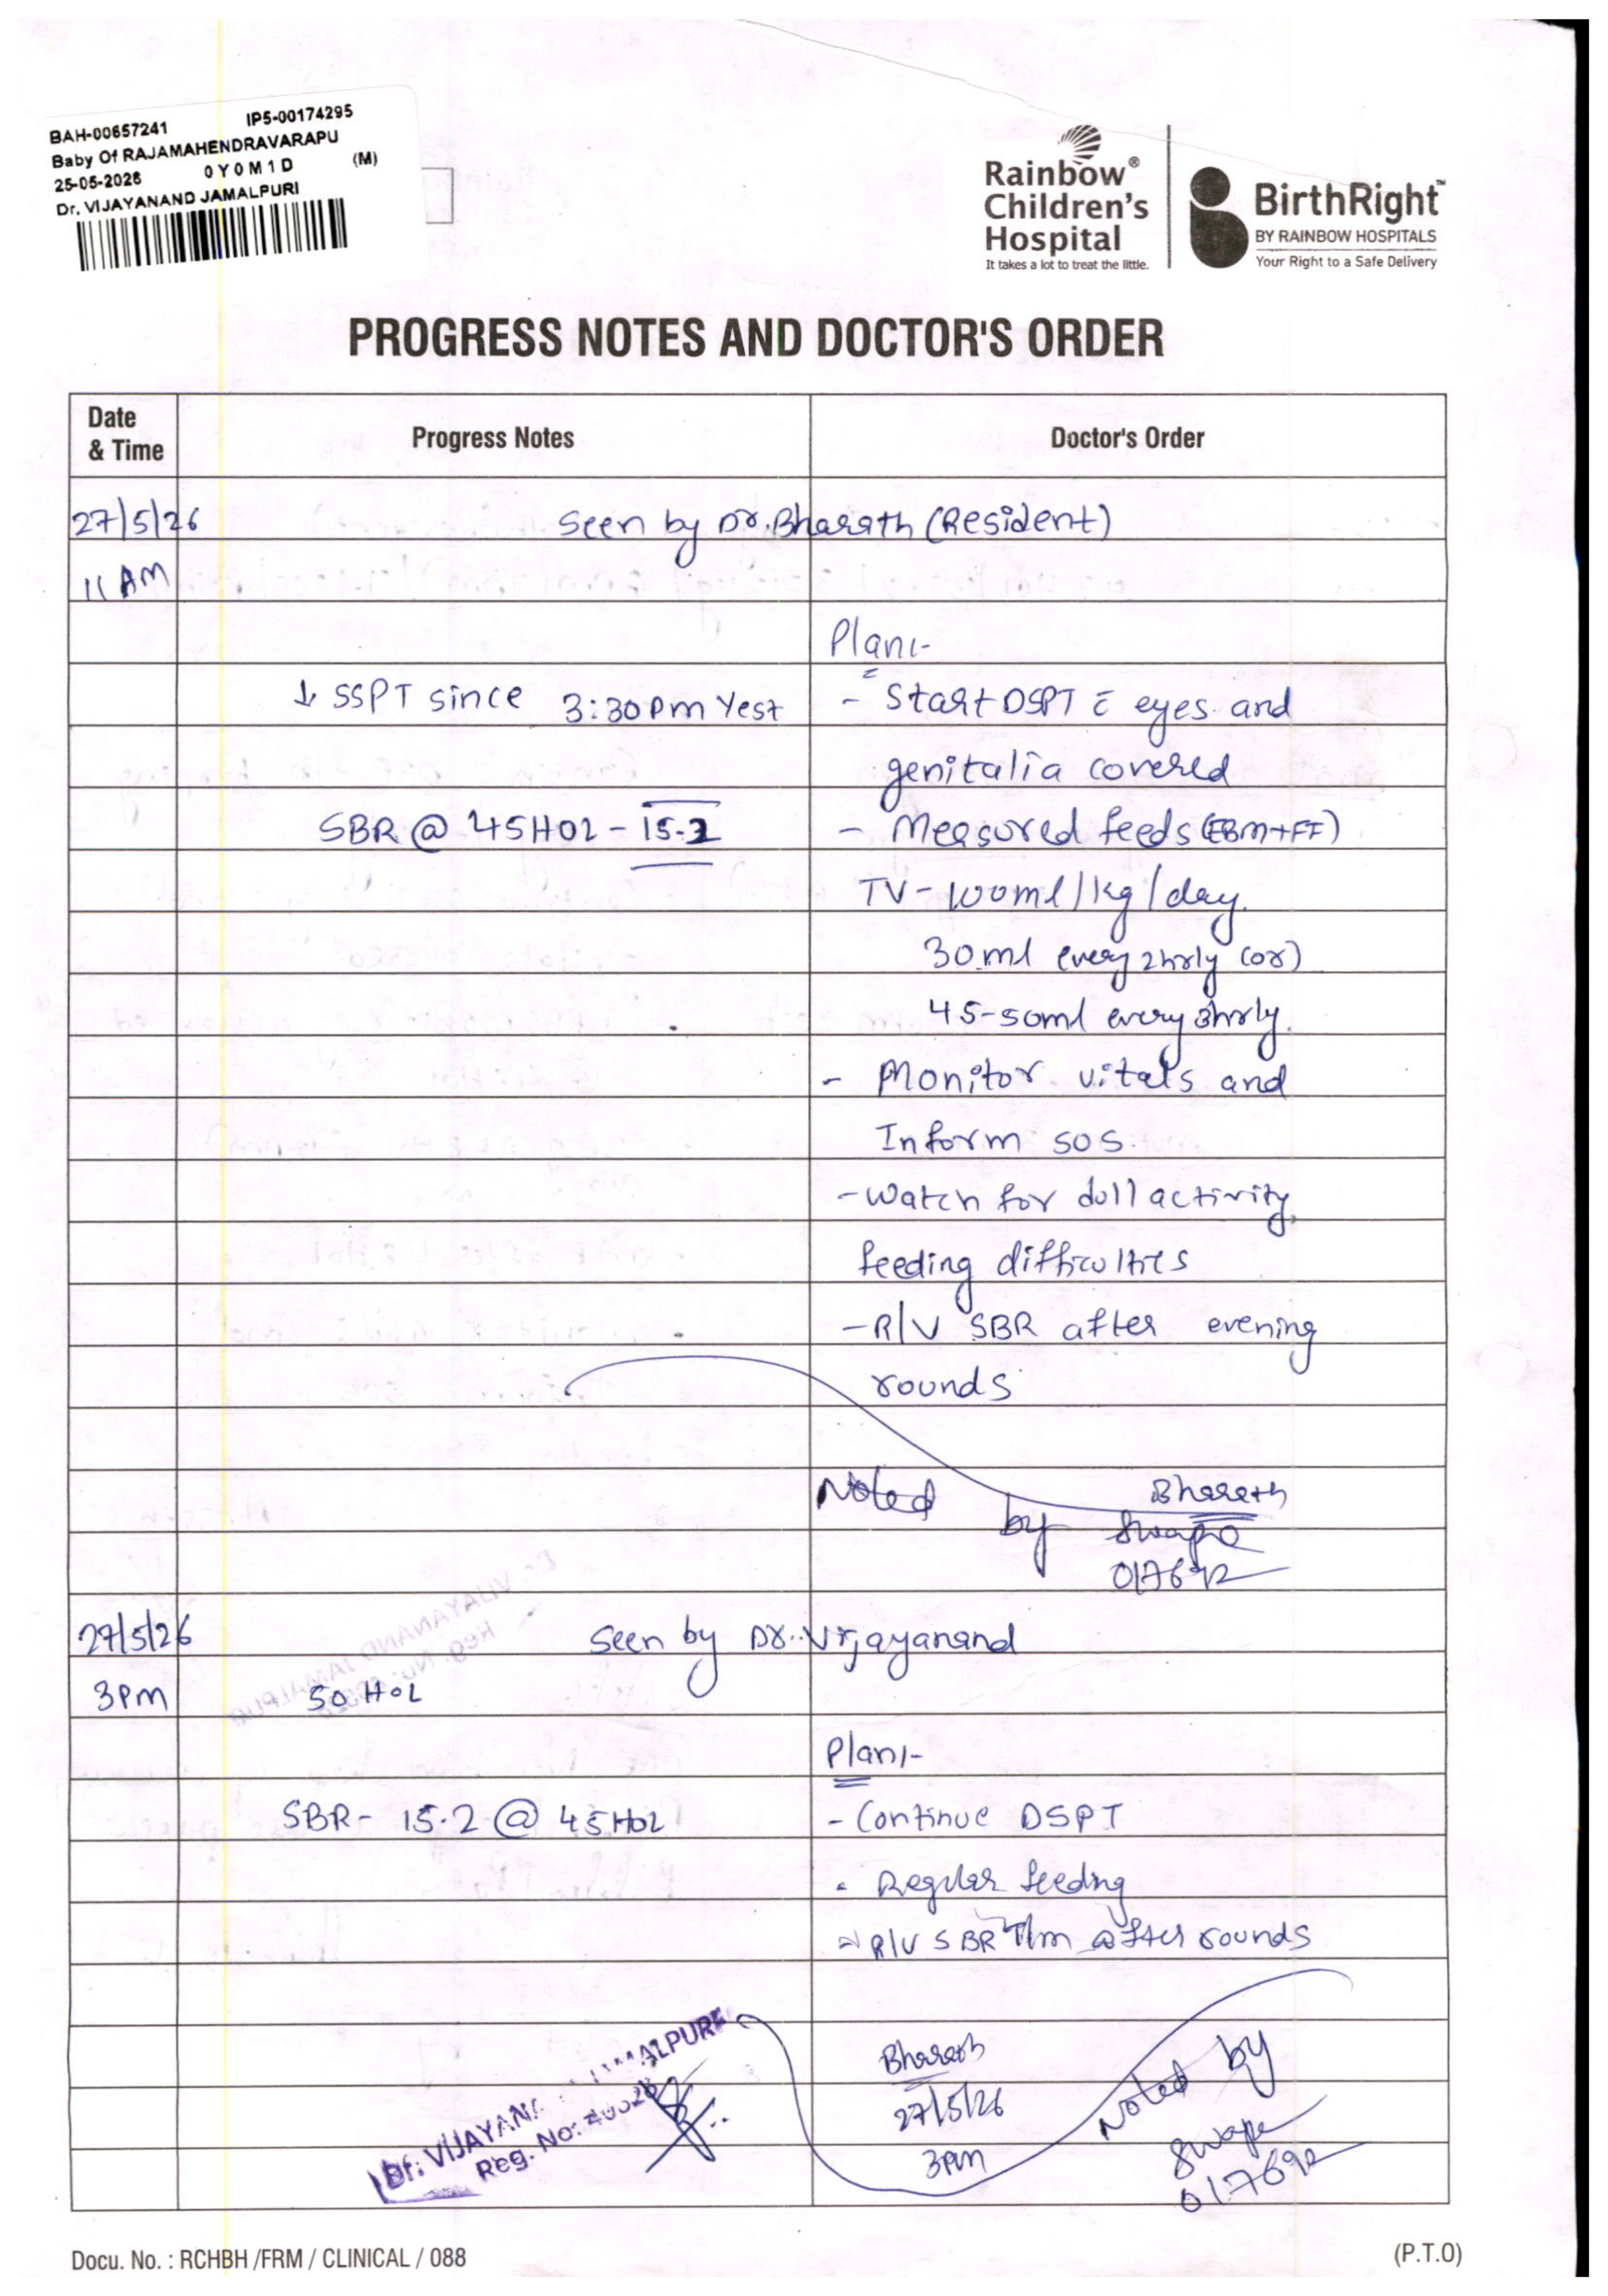 BAH-00657241 IP5-00174295
Baby Of RAJAMAHENDRAVARAPU
25-05-2026 0Y0M1D (M)
Dr. VIJAYANAND JAMALPURI
Rainbow® Children's Hospital
It takes a lot to treat the little.
BirthRight™
BY RAINBOW HOSPITALS
Your Right to a Safe Delivery
PROGRESS NOTES AND DOCTOR'S ORDER
Date & Time Progress Notes Doctor's Order
27/5/26 Seen by Dr. Bharath (Resident)
11 AM
Plan:-
↓ SSPT since 3:30pm Yest - Start DSPT c̄ eyes and
genitalia covered
SBR @ 45HOL - 15.2 - Measured feeds (EBM+FF)
TV - 100ml/kg/day.
30ml every 2hrly (or)
45-50ml every 3hrly.
- Monitor vitals and
Inform SOS.
- Watch for dull activity,
feeding difficulties
- R/V SBR after evening
rounds
Bharath
Noted by
017692
27/5/26 Seen by Dr. Vijayanand
3pm 50 HOL
Plan:-
SBR - 15.2 @ 45HOL - Continue DSPT
- Regular feeding
- R/V SBR T/m after rounds
Bharath
27/5/26
3pm
Noted by
017692
Dr. VIJAYANAND JAMALPURI
Reg. No:
Docu. No. : RCHBH /FRM / CLINICAL / 088 (P.T.O)